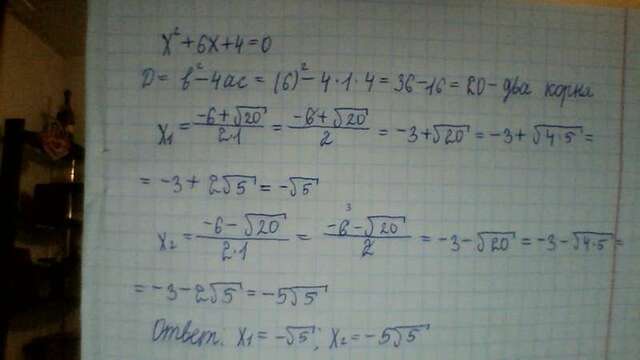 x²+6x+4=0
D= b²-4ac = (6)²-4·1·4=36-16=20-два корня
x₁ = (-6+√20)/(2·1) = (-6+√20)/2 = -3+√20 = -3+√4·5 =
= -3+2√5 = -√5
x₂ = (-6-√20)/(2·1) = (-6³-√20)/2 = -3-√20 = -3-√4·5 =
= -3-2√5 = -5√5
Ответ: x₁ = -√5; x₂ = -5√5